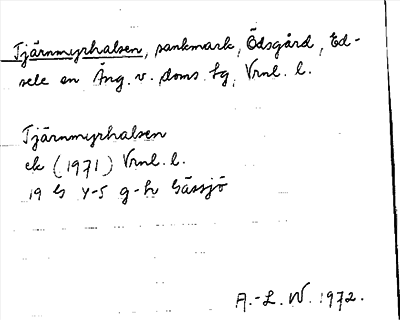 Tjärnmyrhalsen, sankmark, Ödsgård, Ed-
sele sn Ång. v. doms. lg, Vrnl. l.
Tjärnmyrhalsen
ek (1971) Vrnl. l.
19 G 4-5 g-h Gåssjö
A.-L. W. 1972.